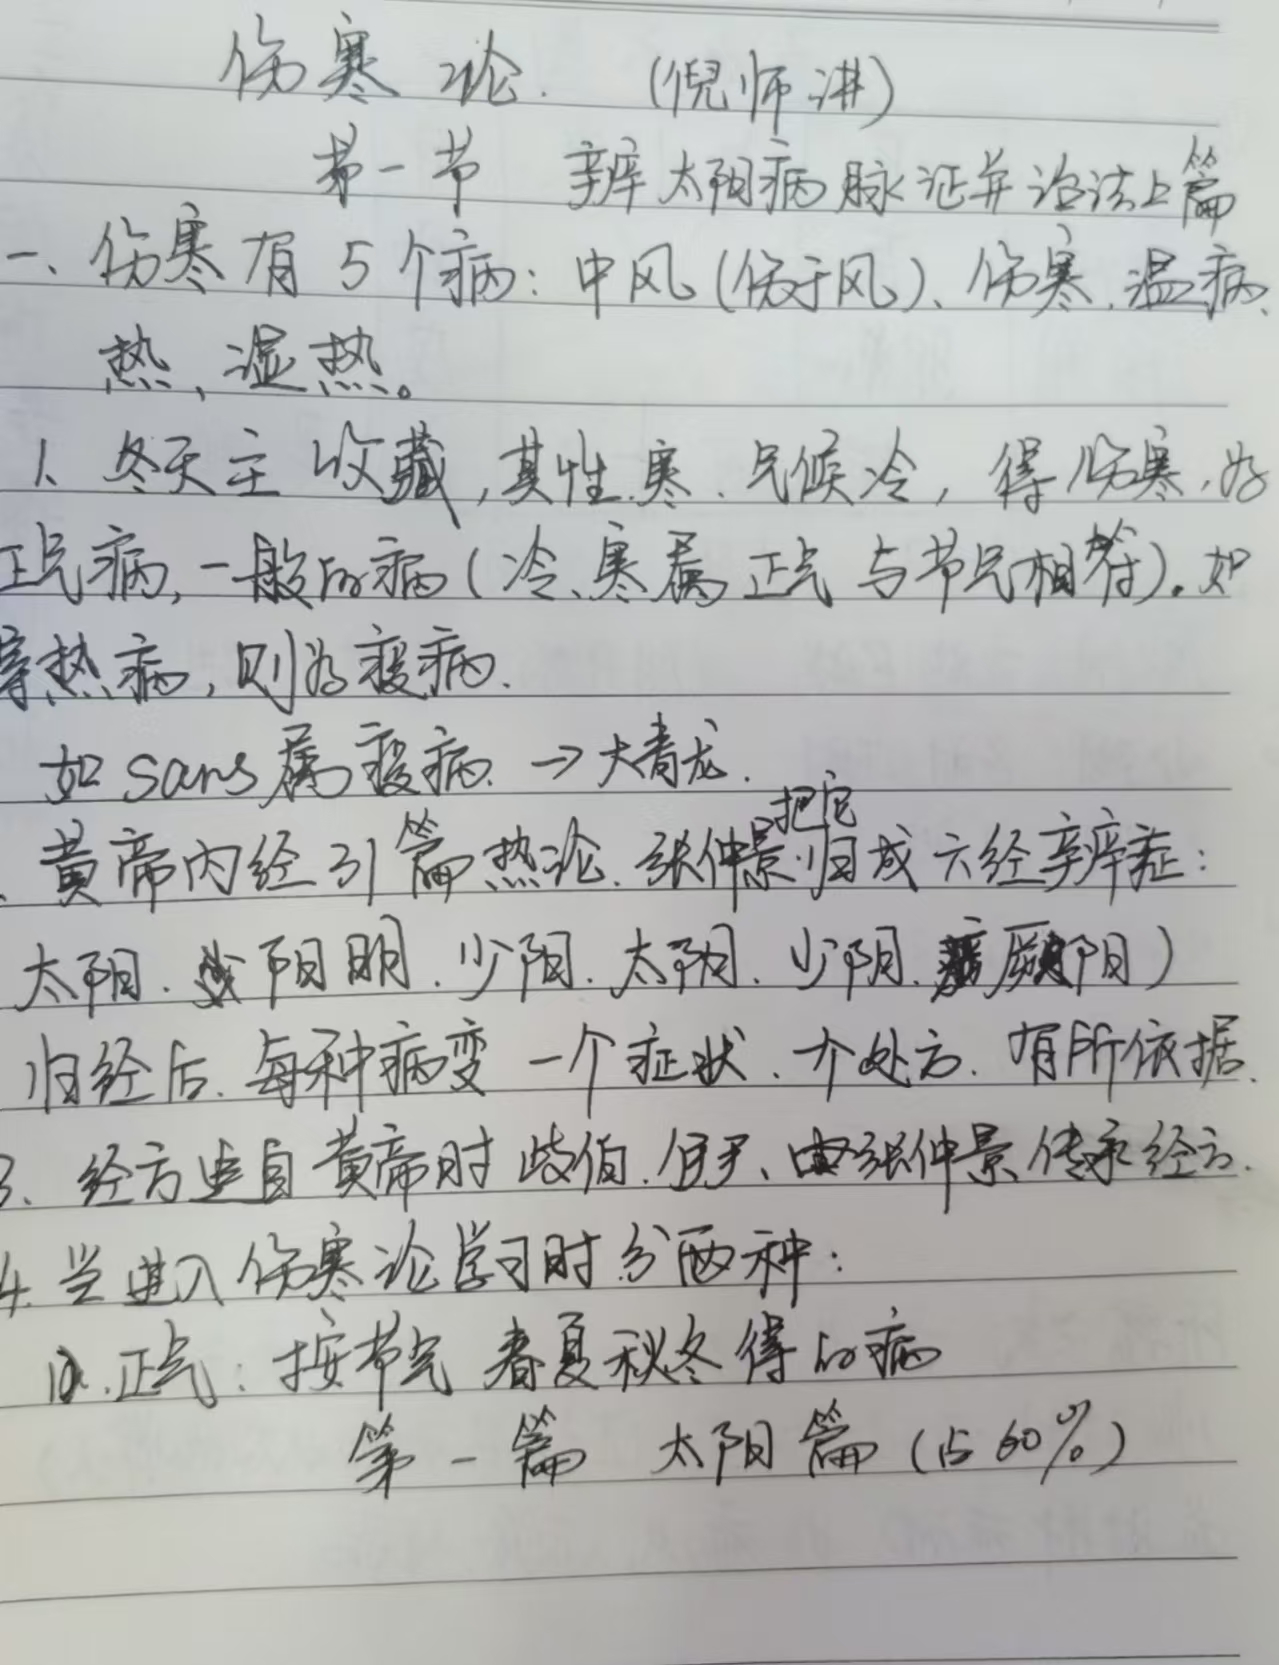 伤寒论. (倪师讲)
第一节 辨太阳病脉证并治法上篇
一、伤寒有5个病: 中风(伤于风)、伤寒、温病、
热、湿热。
1、冬天主收藏,其性寒、气候冷, 得伤寒,为
正气病,一般的病(冷、寒属正气与节气相符)。如
得热病,则为疫病.
如sars属疫病. →大青龙.
黄帝内经31篇热论. 张仲景把它归成六经辨症:
太阳. 阳明. 少阳. 太阴. 少阴. 厥阴)
归经后. 每种病变一个症状、个处方. 有所依据.
3、经方是自黄帝时岐伯. 伊尹、由张仲景传承经方.
4. 当进入伤寒论学习时分两种:
正气: 按节气 春夏秋冬得的病
第一篇 太阳篇(占60%)